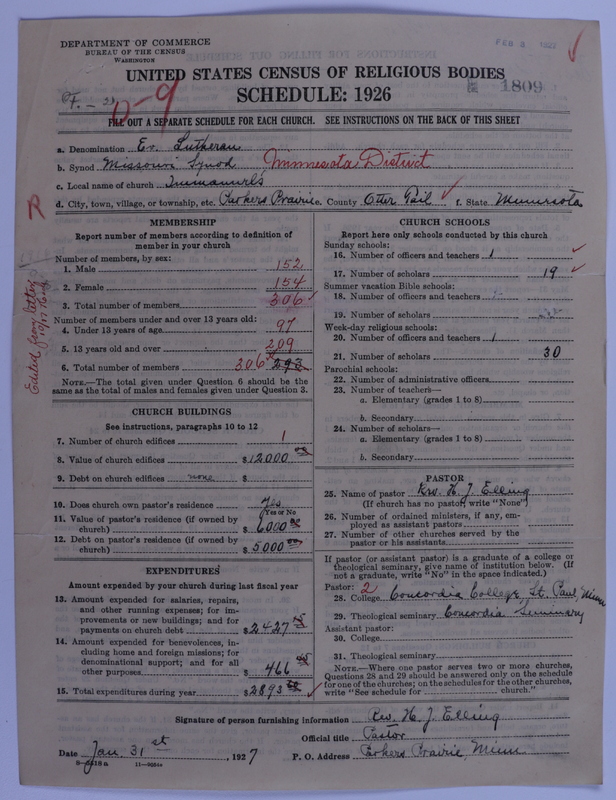 DEPARTMENT OF COMMERCE
BUREAU OF THE CENSUS
WASHINGTON
FEB 3 1927
UNITED STATES CENSUS OF RELIGIOUS BODIES
SCHEDULE: 1926
1809
D-9
FILL OUT A SEPARATE SCHEDULE FOR EACH CHURCH. SEE INSTRUCTIONS ON THE BACK OF THIS SHEET
a. Denomination Ev. Lutheran
b. Synod Missouri Synod Minnesota District
c. Local name of church Immanuels
d. City, town, village, or township, etc. Parkers Prairie e. County Otter Tail f. State Minnesota
MEMBERSHIP
Report number of members according to definition of
member in your church
Number of members, by sex:
1. Male 152
2. Female 154
3. Total number of members 306
Number of members under and over 13 years old:
4. Under 13 years of age 97
5. 13 years old and over 209
6. Total number of members 306 293
NOTE.—The total given under Question 6 should be
same as the total of males and females given under Question 3.
CHURCH BUILDINGS
See instructions, paragraphs 10 to 12
7. Number of church edifices 1
8. Value of church edifices $12000 00
9. Debt on church edifices none $
10. Does church own pastor's residence Yes
Yes or No
11. Value of pastor's residence (if owned by
church) $6000 00
12. Debt on pastor's residence (if owned by
church) $5000 00
EXPENDITURES
Amount expended by your church during last fiscal year
13. Amount expended for salaries, repairs,
and other running expenses; for im-
provements or new buildings; and for
payments on church debt $2427
14. Amount expended for benevolences, in-
cluding home and foreign missions; for
denominational support; and for all
other purposes $466
15. Total expenditures during year $2893
CHURCH SCHOOLS
Report here only schools conducted by this church
Sunday schools:
16. Number of officers and teachers 1
17. Number of scholars 19
Summer vacation Bible schools:
18. Number of officers and teachers
19. Number of scholars
Week-day religious schools:
20. Number of officers and teachers 1
21. Number of scholars 30
Parochial schools:
22. Number of administrative officers
23. Number of teachers—
a. Elementary (grades 1 to 8)
b. Secondary
24. Number of scholars—
a. Elementary (grades 1 to 8)
b. Secondary
PASTOR
25. Name of pastor Rev. H. J. Elling
(If church has no pastor, write "None")
26. Number of ordained ministers, if any, em-
ployed as assistant pastors
27. Number of other churches served by the
pastor or his assistants
If pastor (or assistant pastor) is a graduate of a college or
theological seminary, give name of institution below. (If
not a graduate, write "No" in the space indicated.)
Pastor: 2
28. College Concordia College, St. Paul, Minn
29. Theological seminary Concordia Seminary
Assistant pastor:
30. College
31. Theological seminary
NOTE.—Where one pastor serves two or more churches,
Questions 28 and 29 should be answered only on the schedule
for one of the churches; on the schedules for the other churches,
write "See schedule for church."
Signature of person furnishing information Rev. H. J. Elling
Official title Pastor
Date Jan. 31st, 1927 P. O. Address Parkers Prairie, Minn